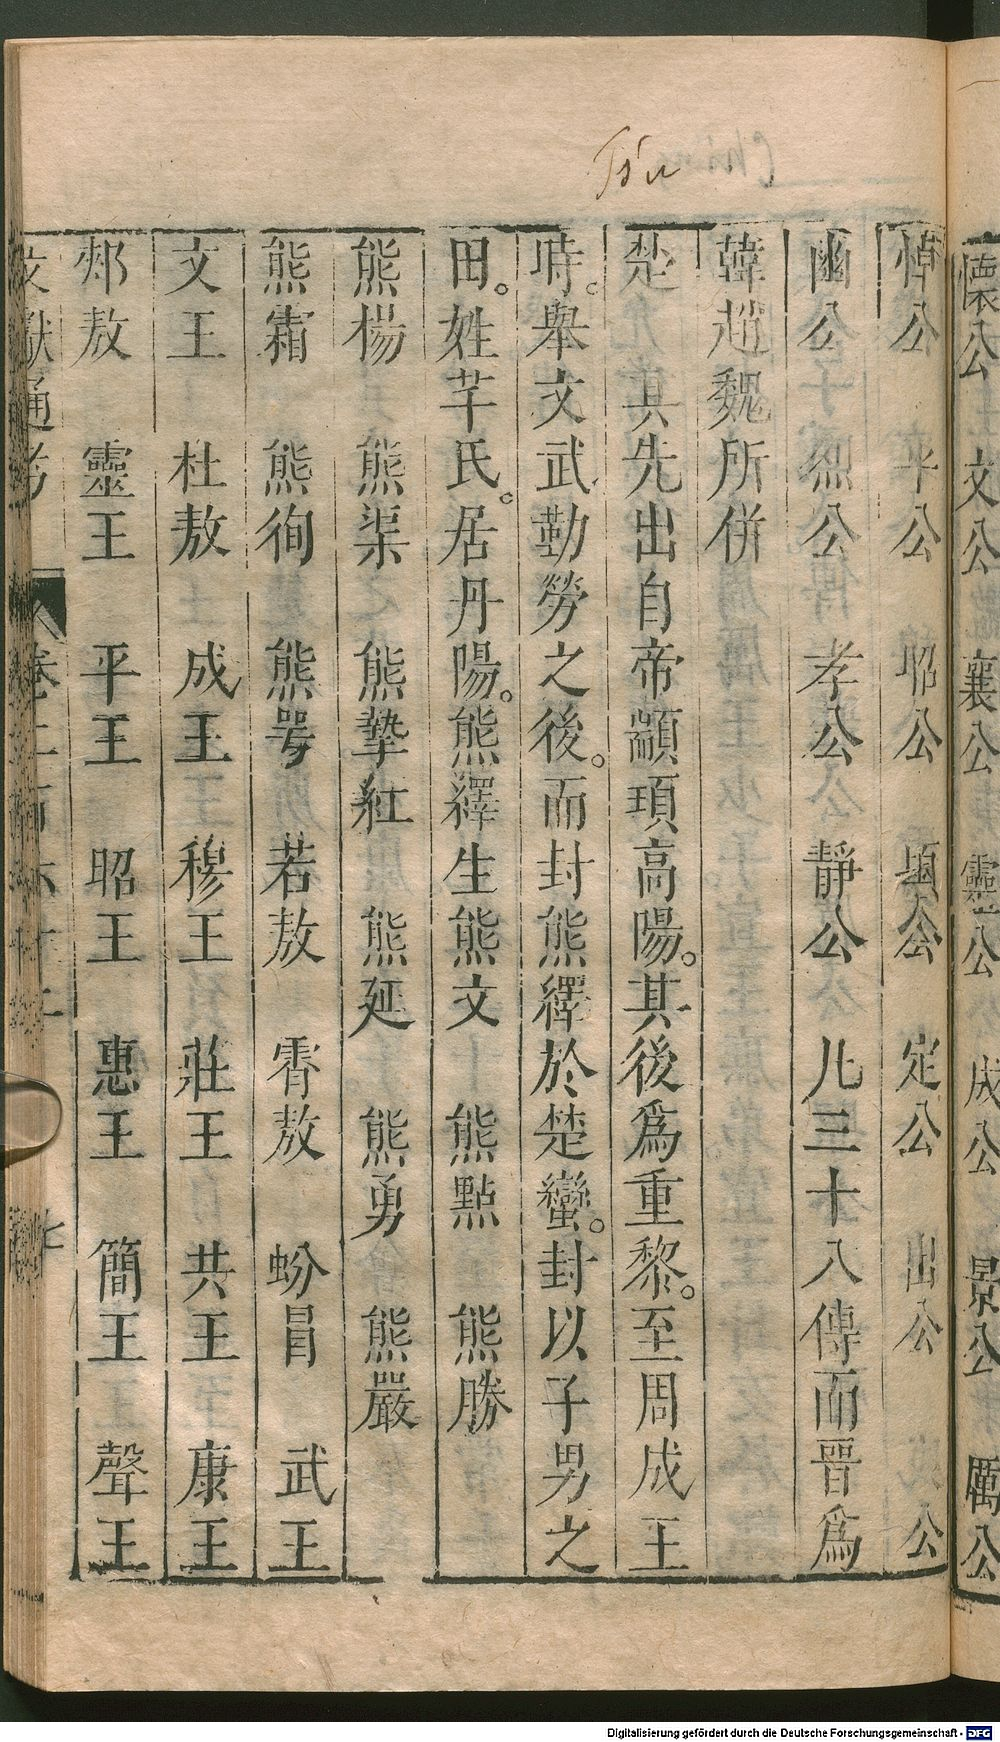 懷公 文公 襄公 靈公 成公 景公 厲公
悼公 平公 昭公 頃公 定公 出公 公
幽公 烈公 孝公 靜公 凡三十八傳而晉爲
韓趙魏所併
楚 其先出自帝顓頊高陽。其後爲重黎。至周成王
時。舉文武勤勞之後。而封熊繹於楚蠻。封以子男之
田。姓芊氏。居丹陽。熊繹生熊文 熊點 熊勝
熊楊 熊渠 熊摯紅 熊延 熊勇 熊嚴
熊霜 熊徇 熊咢 若敖 霄敖 蚡冒 武王
文王 杜敖 成王 穆王 莊王 共王 康王
郟敖 靈王 平王 昭王 惠王 簡王 聲王
文獻通考 卷二百六十二 七
Ts'u
Digitalisierung gefördert durch die Deutsche Forschungsgemeinschaft - DFG